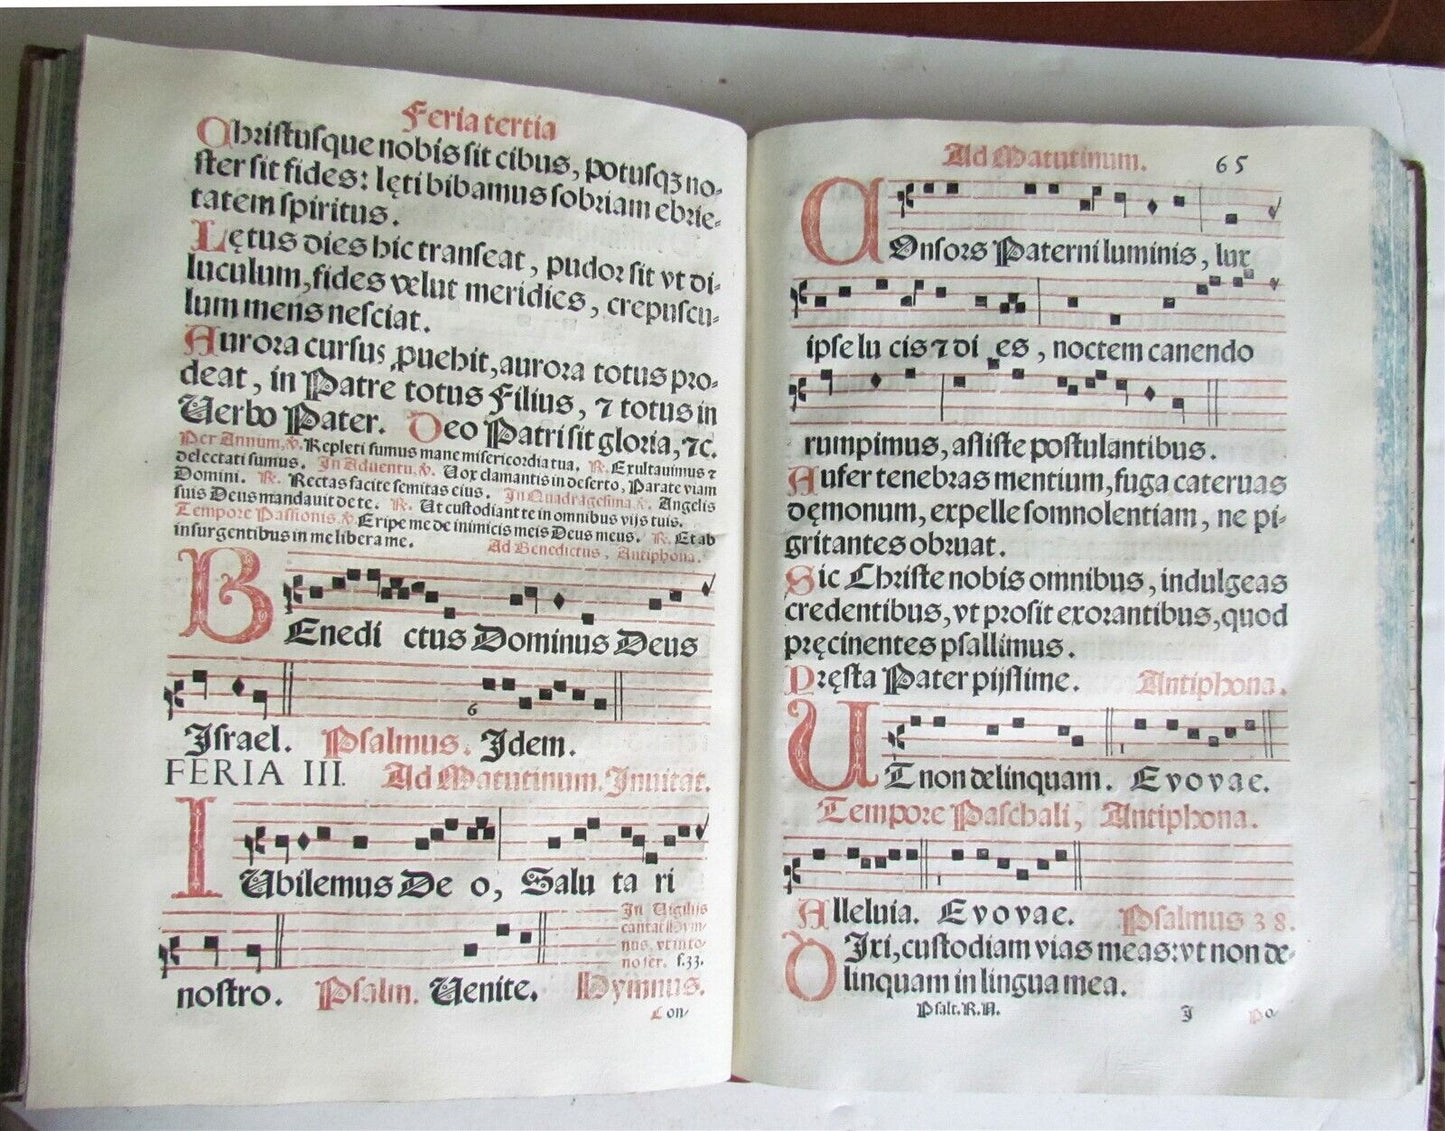 Feria tertia
Christusque nobis sit cibus, potusqꝫ no-
ster sit fides: lęti bibamus sobriam ebrie-
tatem spiritus.
Lętus dies hic transeat, pudor sit vt di-
luculum, fides velut meridies, crepuscu-
lum mens nesciat.
Aurora cursus ꝓuehit, aurora totus pro-
deat, in Patre totus Filius, ⁊ totus in
Uerbo Pater. Deo Patri sit gloria, ⁊c.
Per Annum, ℣. Repleti sumus mane misericordia tua. ℟. Exultauimus ⁊
delectati sumus. In Aduentu, ℣. Uox clamantis in deserto, Parate viam
Domini. ℟. Rectas facite semitas eius. In Quadragesima ℣. Angelis
suis Deus mandauit de te. ℟. Ut custodiant te in omnibus vijs tuis.
Tempore Passionis ℣. Eripe me de inimicis meis Deus meus. ℟. Et ab
insurgentibus in me libera me. Ad Benedictus, Antiphona.
BEnedi ctus Dominus Deus
6
Israel. Psalmus. Idem.
FERIA III. Ad Matutinum. Inuitat.
IUbilemus De o, Salu ta ri
In Uigilijs
cantat Hym-
nus, vt in to-
no fer. f.33.
nostro. Psalm. Uenite. Hymnus.
Con-
Ad Matutinum. 65
COnsors Paterni luminis, lux
ipse lu cis ⁊ di es, noctem canendo
rumpimus, assiste postulantibus.
Aufer tenebras mentium, fuga cateruas
dęmonum, expelle somnolentiam, ne pi-
gritantes obruat.
Sic Christe nobis omnibus, indulgeas
credentibus, vt prosit exorantibus, quod
pręcinentes psallimus.
Pręsta Pater pijssime. Antiphona.
UT non delinquam. Evovae.
Tempore Paschali, Antiphona.
Alleluia. Evovae. Psalmus 38.
DIxi, custodiam vias meas: vt non de-
linquam in lingua mea.
Psalt. R. A. I Po-